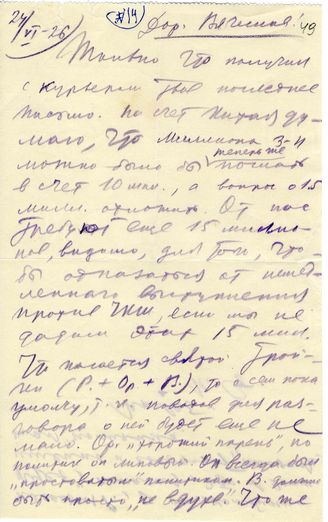 24/VI-26) (№14) Дор. Вячеслав! 49
Только что получил
с курьером твое последнее
письмо. На счет Китая ду-
маю, что миллиона 3-4
теперь же
можно было бы послать
в счет 10 мил., а вопрос о 15
милл. отложить. От нас
требуют еще 15 миллио-
нов, видимо, для того, что-
бы отказаться от немед-
ленного выступления
против Чжш, если мы не
дадим этих 15 мил.
Что касается святой трой-
ки (Р. + Ор + В.), то я сам пока
умолчу, т. к. поводов для раз-
говора о ней будет еще не
мало. Ор. „хороший парень“ но
политик он липовый. Он всегда был
„простоватым“ политиком. В. должно
быть просто „не в духе“. Что же